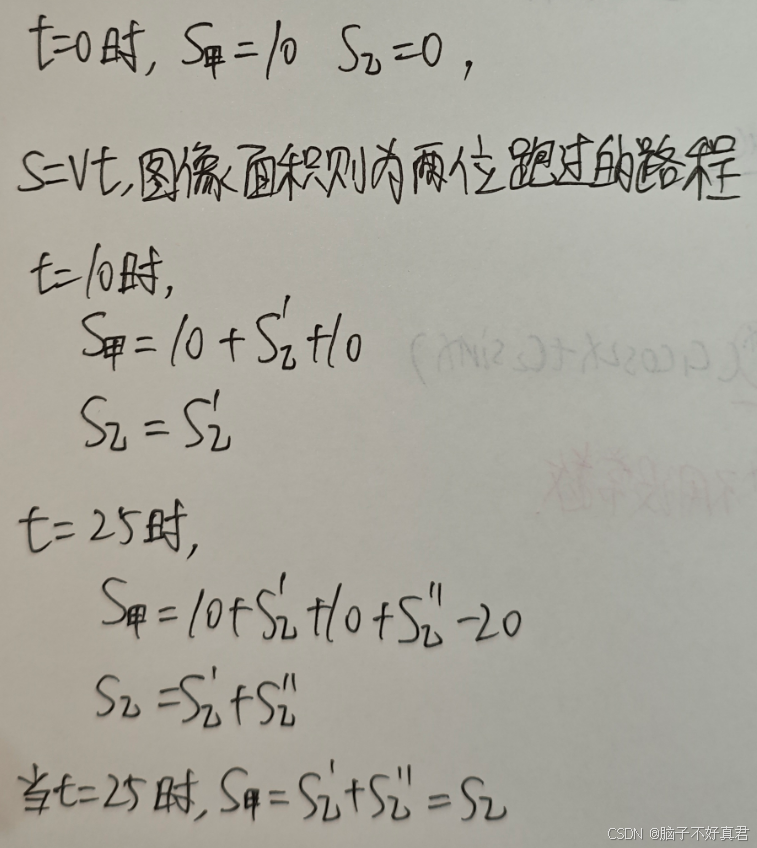 t=0时, S甲=10 S乙=0,
S=Vt,图像面积则为两位跑过的路程
t=10时,
S甲=10+S乙'+10
S乙=S乙'
t=25时,
S甲=10+S乙'+10+S乙''-20
S乙=S乙'+S乙''
当t=25时,S甲=S乙'+S乙''=S乙
CSDN @脑子不好真君